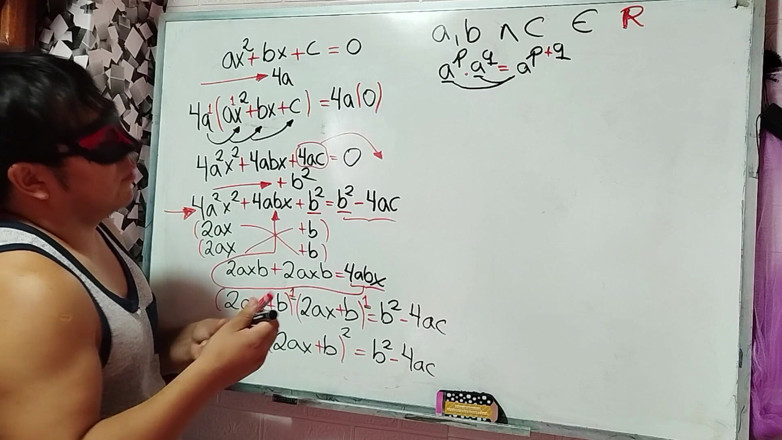 ax² + bx + c = 0
4a
4a¹(a¹x² + bx + c) = 4a(0)
4a²x² + 4abx + 4ac = 0
+ b²
4a²x² + 4abx + b² = b² - 4ac
(2ax + b)
(2ax + b)
2axb + 2axb = 4abx
(2ax + b)¹(2ax + b)¹ = b² - 4ac
(2ax + b)² = b² - 4ac
a, b ∧ c ∈ R
aᵖ · a^q = a^(p+q)